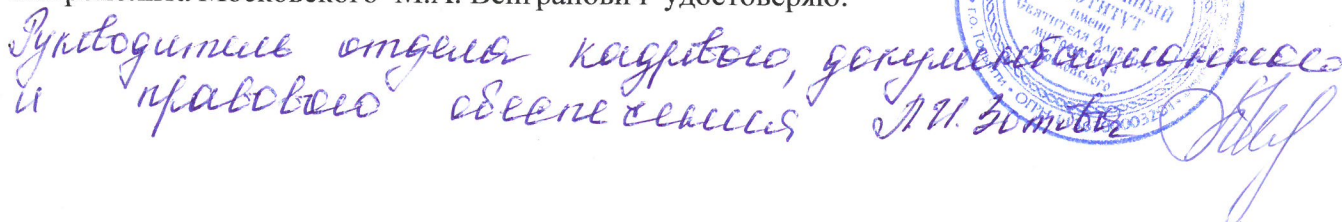 Московского М.А. Венгранович удостоверяю.
Руководитель отдела кадрового, документационного
и правового обеспечения Л.И. Зотова
ИНСТИТУТ
имени
святителя